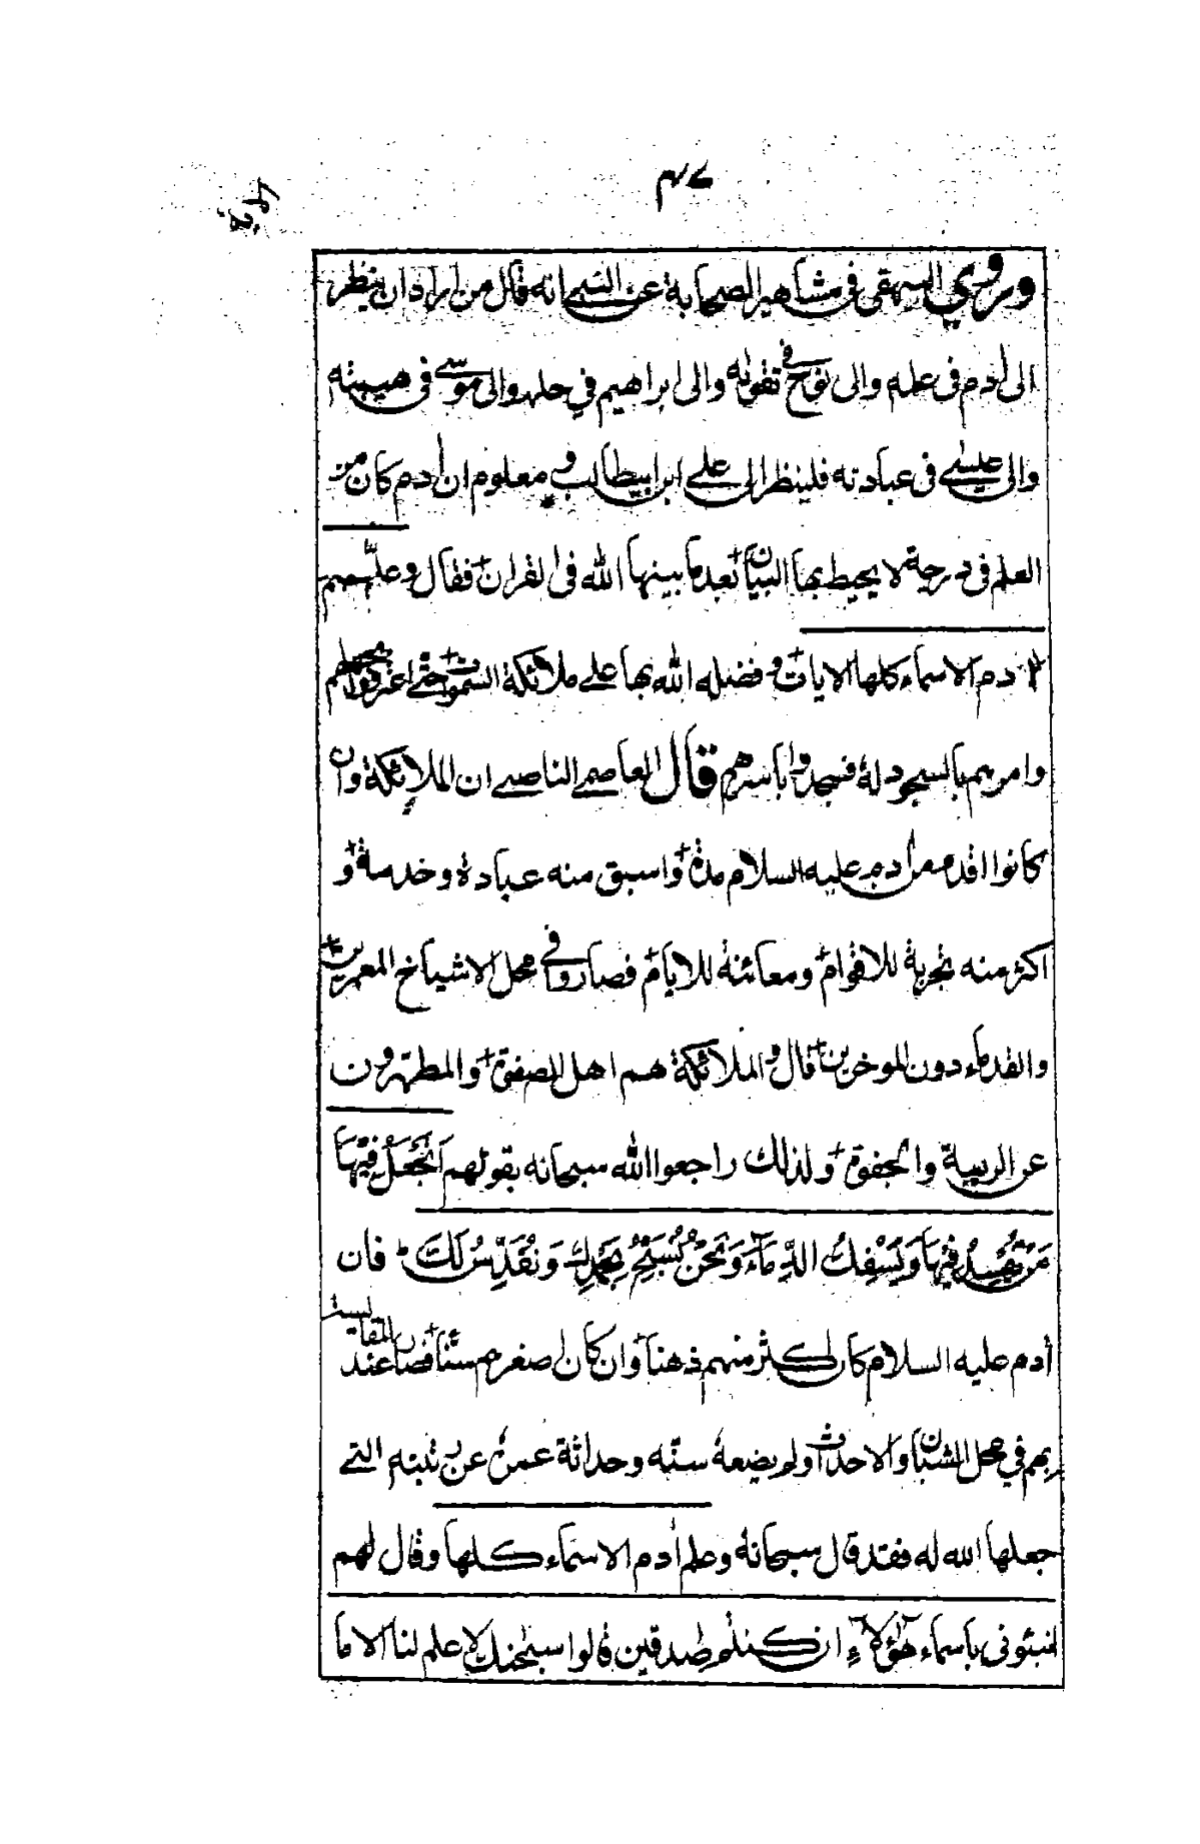 ٤٧
وروي البيهقى فى مشاهير الصحابة عن النبى انه قال من اراد ان ينظر
الى أدم فى علمه والى نوح فى تقواه والى ابراهيم في حلمه والى موسى فى هيبته
والى عيسى فى عبادته فلينظر الى على ابن ابيطالب و معلوم ان أدم كان من
العلم فى درجة لا يحيط بها البيان بعد ما بينها الله فى القران فقال وعلم
أدم الاسماء كلها الايات و فضله الله بها على ملائكة السموات حتى اعترفوا
وامرهم بالسجود له فسجدوا باسرهم قال العاصمى الناصبى ان الملائكة وان
كانوا اقدم من أدم عليه السلام مدة واسبق منه عبادة وخدمة و
اكثر منه تجربة للاقوام ومعائنة للايام فصاروا فى محل الاشياخ المعمرين
والقدماء دون الموخرين قال والملائكة هم اهل الصفوة والمطهرون
عن الريبة والجفوة ولذلك راجعوا الله سبحانه بقولهم اَتَجْعَلُ فِيْهَا
مَنْ يُفْسِدُ فِيْهَا وَيَسْفِكُ الدِّمَآءَ وَنَحْنُ نُسَبِّحُ بِحَمْدِكَ وَنُقَدِّسُ لَكَ فان
أدم عليه السلام كان اكثر منهم ذهنا وان كان اصغرهم سنّا فصار عند المقايسة
بهم في محل الشبان والاحداث ولم يضعه سنّه وحداثة عمره عن رتبته التى
جعلها الله له فقد قال سبحانه وعلم أدم الاسماء كلها وقال لهم
انبئونى باسماء هٰؤلآءِ ان كنتم صٰدقين قالوا سبحٰنك لا علم لنا الا ما